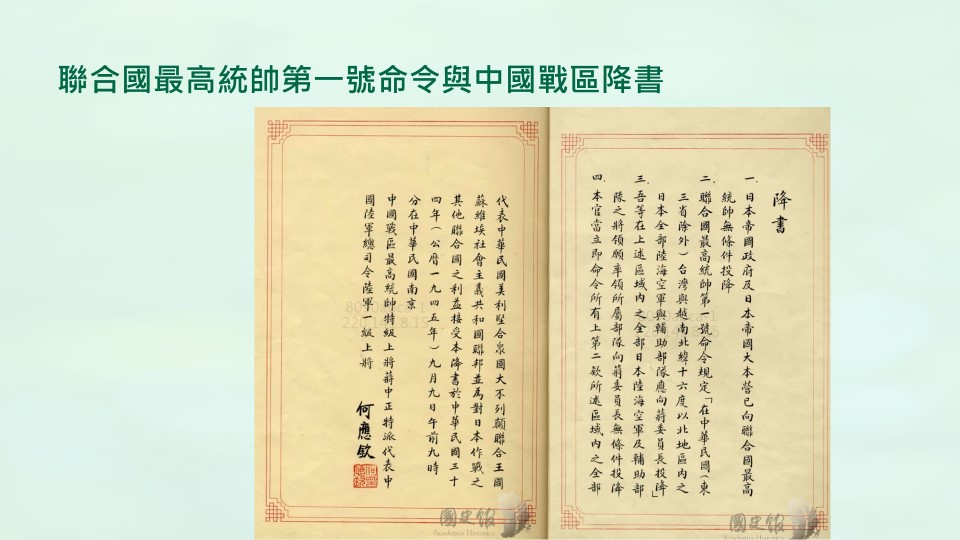 聯合國最高統帥第一號命令與中國戰區降書
降書
一.日本帝國政府及日本帝國大本營已向聯合國最高
統帥無條件投降
二.聯合國最高統帥第一號命令規定「在中華民國(東
三省除外)台灣與越南北緯十六度以北地區內之
日本全部陸海空軍與輔助部隊應向蔣委員長投降」
三.吾等在上述區域內之全部日本陸海空軍及輔助部
隊之將領願率領所屬部隊向蔣委員長無條件投降
四.本官當立即命令所有上第二款所述區域內之全部
代表中華民國美利堅合眾國大不列顛聯合王國
蘇維埃社會主義共和國聯邦並為對日本作戰之
其他聯合國之利益接受本降書於中華民國三十
四年(公曆一九四五年)九月九日午前九時
分在中華民國南京
中國戰區最高統帥特級上將蔣中正特派代表中
國陸軍總司令陸軍一級上將
何應欽
國史館
Academia Historica
國史館
Academia Historica